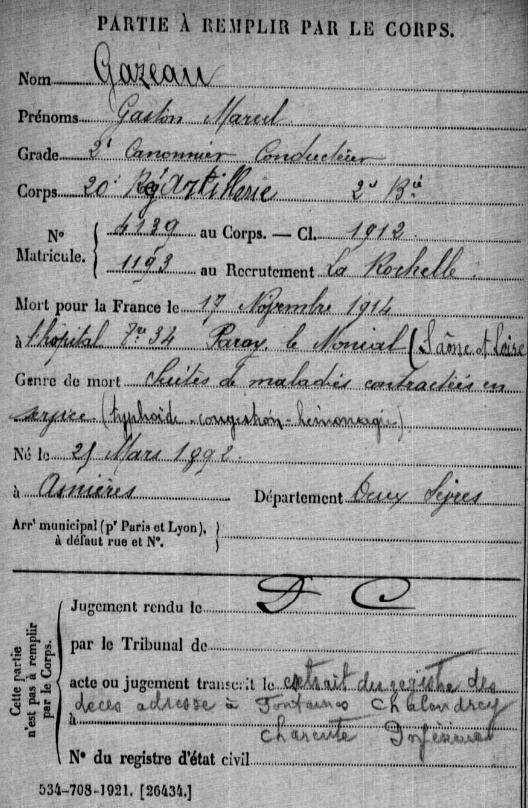 PARTIE À REMPLIR PAR LE CORPS.
Nom Gazeau
Prénoms Gaston Marcel
Grade 2e Canonnier Conducteur
Corps 20e Rég Artillerie 2e Bie
No Matricule. 4139 au Corps. — Cl. 1912
1193 au Recrutement La Rochelle
Mort pour la France le 17 Novembre 1914
à l'hopital 34 Paray le Monial (Saône et Loire
Genre de mort Suites de maladies contractées en
service (typhoïde - congestion - hémorragie)
Né le 25 Mars 1892
à Asnières Département Deux Sèvres
Arrt municipal (pr Paris et Lyon),
à défaut rue et No.
Cette partie
n'est pas à remplir
par le Corps.
Jugement rendu le D C
par le Tribunal de
acte ou jugement transcrit le extrait du registre des
décès adressé à Fontaines Chalendray
à Charente Inférieure
No du registre d'état civil
534-708-1921. [26434.]